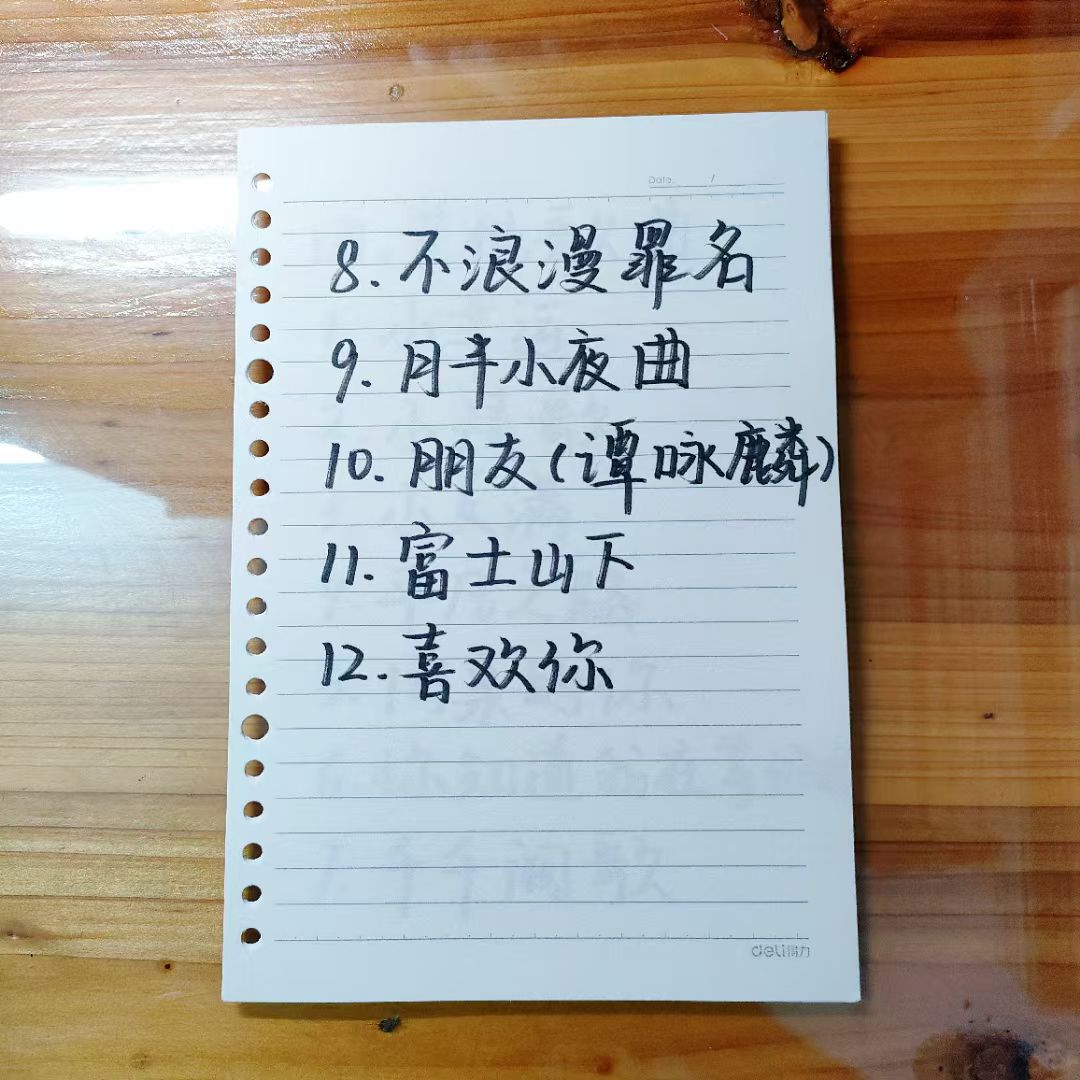 Date. /
8. 不浪漫罪名
9. 月半小夜曲
10. 朋友(谭咏麟)
11. 富士山下
12. 喜欢你
7. 千千阙歌
deli得力